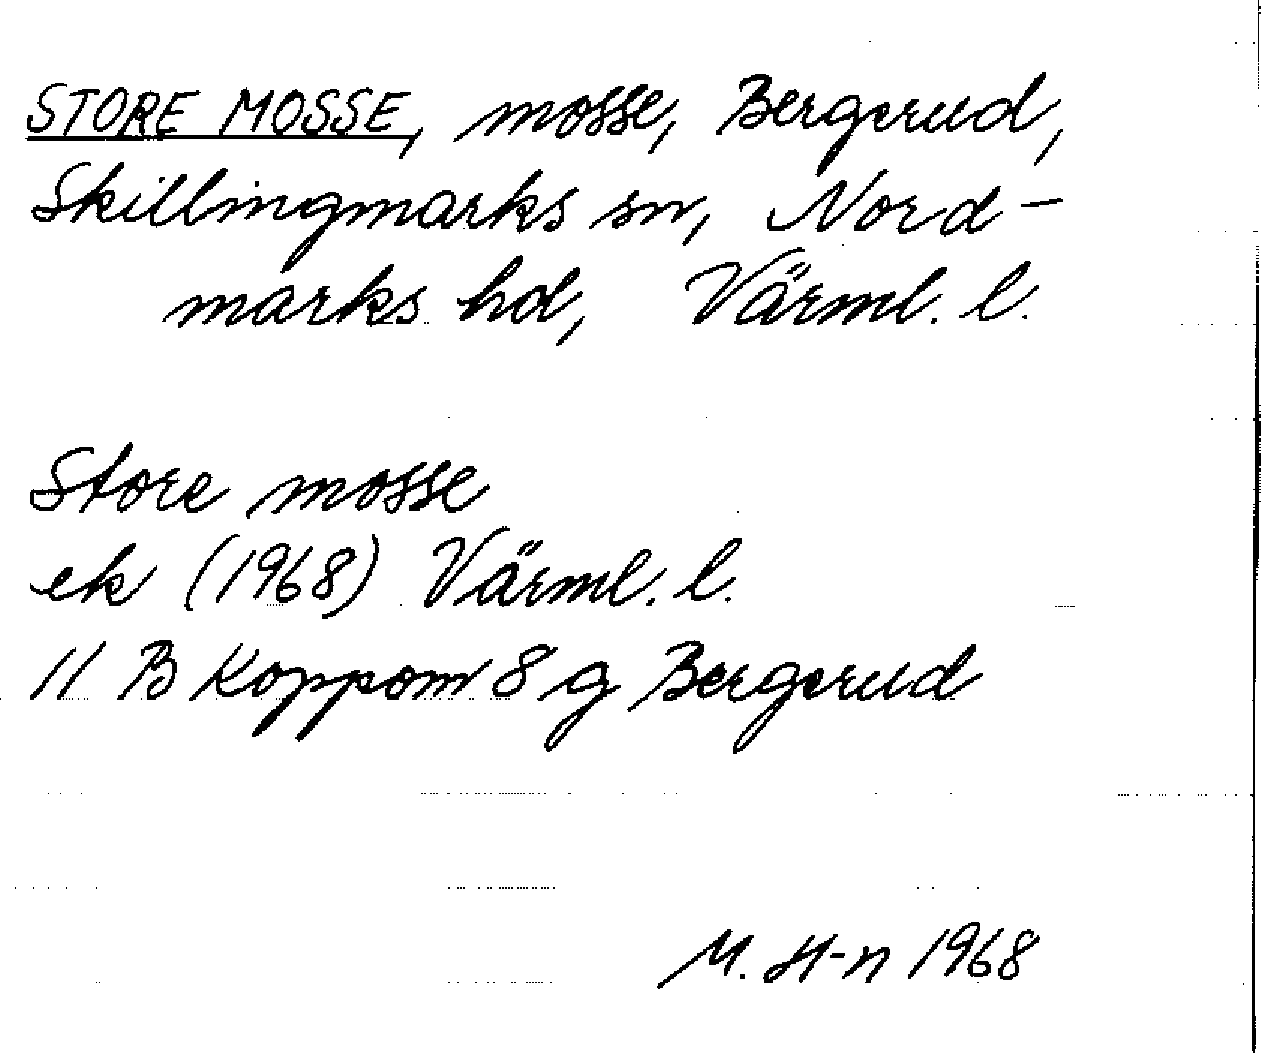 STORE MOSSE, mosse, Bergerud,
Skillingmarks sn, Nord-
marks hd, Värml. l.
Store mosse
ek (1968) Värml. l.
11 B Koppom 8 g Bergerud
M. H-n 1968